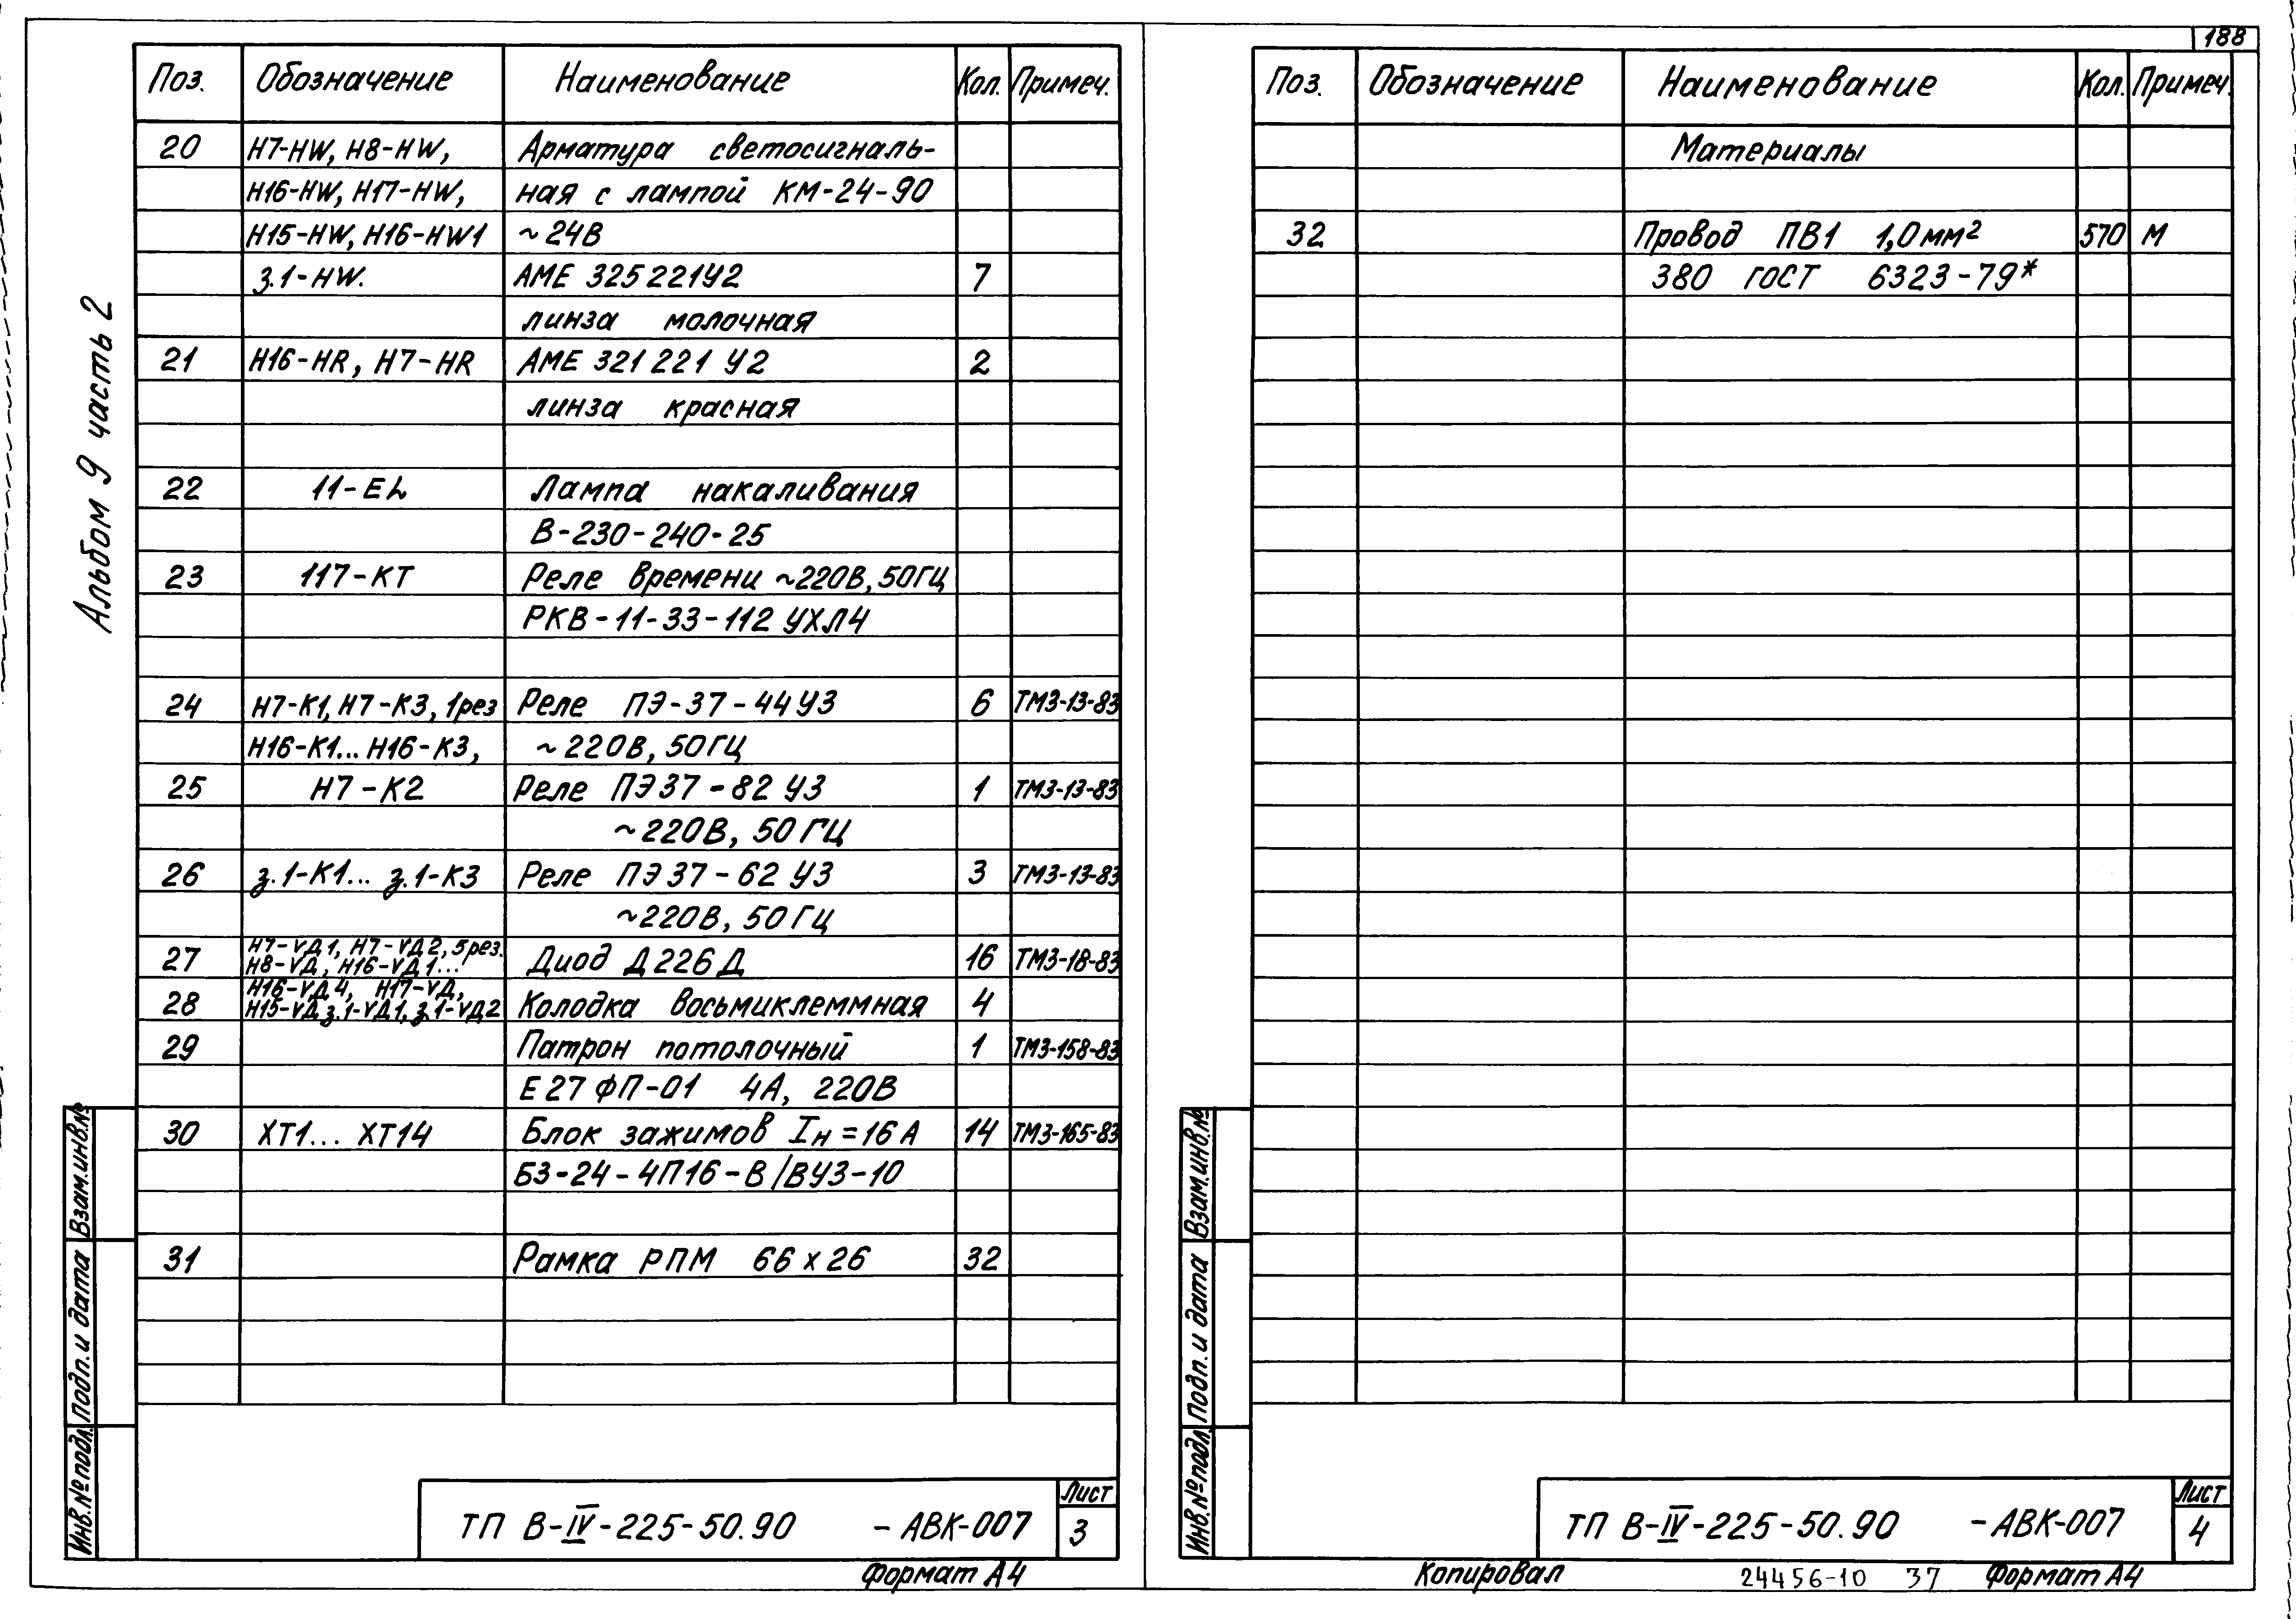 188
Альбом 9 часть 2
Поз. Обозначение Наименование Кол. Примеч.
20 Н7-НW, Н8-НW, Арматура светосигналь-
Н16-НW, Н17-НW, ная с лампой КМ-24-90
Н15-НW, Н16-НW1 ~24В
з.1-НW. АМЕ 325221У2 7
линза молочная
21 Н16-НR, Н7-НR АМЕ 321221 У2 2
линза красная
22 11-EL Лампа накаливания
В-230-240-25
23 117-КТ Реле времени ~220В, 50ГЦ
РКВ-11-33-112 УХЛ4
24 Н7-К1, Н7-К3, 1рез Реле ПЭ-37-44У3 6 ТМ3-13-83
Н16-К1... Н16-К3, ~220В, 50ГЦ
25 Н7-К2 Реле ПЭ37-82 У3 1 ТМ3-13-83
~220В, 50 ГЦ
26 з.1-К1... з.1-К3 Реле ПЭ37-62 У3 3 ТМ3-13-83
~220В, 50 Гц
27 Н7-VД1, Н7-VД2, 5рез. Диод Д226Д 16 ТМ3-18-83
Н8-VД, Н16-VД1...
Н16-VД4, Н17-VД,
28 Н15-VД, з.1-VД1, з.1-VД2 Колодка восьмиклеммная 4
29 Патрон потолочный 1 ТМ3-158-83
Е27 ФП-01 4А, 220В
30 ХТ1... ХТ14 Блок зажимов Iн=16А 14 ТМ3-165-83
Б3-24-4П16-В/ВУ3-10
31 Рамка РПМ 66х26 32
Взам.инв.№
Подп. и дата
Инв.№ подл.
ТП В-IV-225-50.90 -АВК-007
Лист
3
Формат А4
Поз. Обозначение Наименование Кол. Примеч.
Материалы
32 Провод ПВ1 1,0мм² 570 м
380 ГОСТ 6323-79*
Взам.инв.№
Подп. и дата
Инв.№ подл.
ТП В-IV-225-50.90 -АВК-007
Лист
4
Копировал 24456-10 37 Формат А4